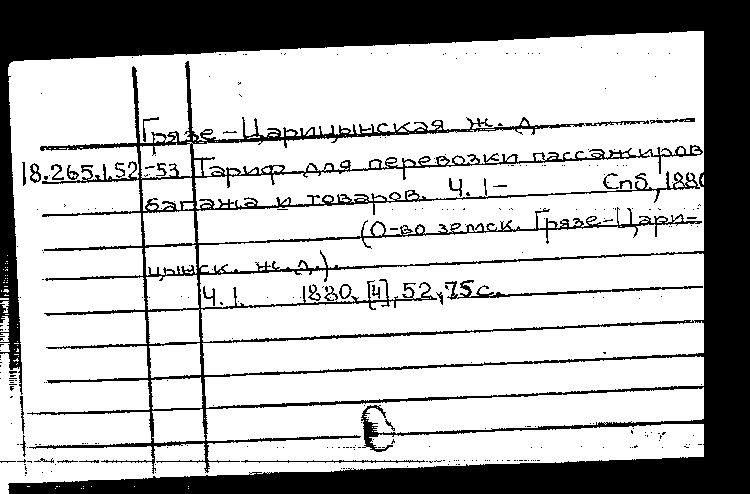 Грязе-Царицынская ж. д.
18.265.1.52-53 Тариф для перевозки пассажиров
багажа и товаров. Ч. 1- Спб., 1880
(О-во земск. Грязе-Цари-
цынск. ж.д.).
Ч. 1. 1880. [4], 52, 75 с.